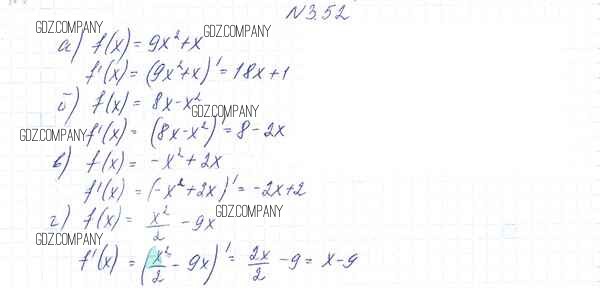 N 3.52
GDZ.COMPANY
а) f(x) = 9x² + x GDZ.COMPANY
f'(x) = (9x² + x)' = 18x + 1
б) f(x) = 8x - x²
GDZ.COMPANY
GDZ.COMPANY f'(x) = (8x - x²)' = 8 - 2x
в) f(x) = - x² + 2x
f'(x) = (- x² + 2x)' = -2x + 2
г) f(x) = x²/2 - 9x GDZ.COMPANY
GDZ.COMPANY
f'(x) = (x²/2 - 9x)' = 2x/2 - 9 = x - 9